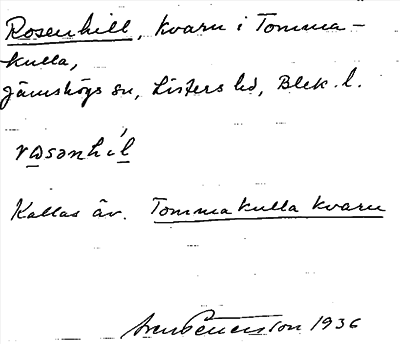 Rosenhill, kvarn i Tomma-
kulla,
Jämshögs sn, Listers hd, Blek. l.
rɷsənhíl
Kallas äv. Tommakulla kvarn
1936